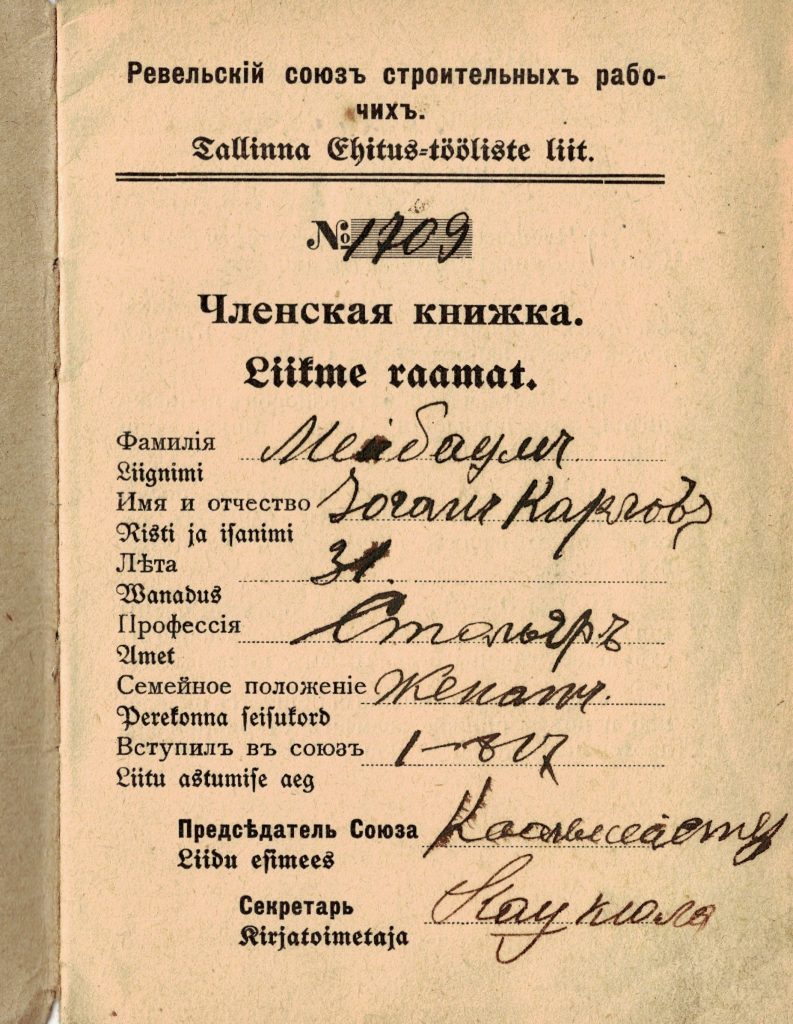 Ревельскій союзъ строительныхъ рабо-
чихъ.
Tallinna Ehitus-tööliste liit.
№ 1709
Членская книжка.
Liikme raamat.
Фамилія Мейбаумъ
Liignimi
Имя и отчество Іоганъ Карловъ
Risti ja isanimi
Лѣта 31.
Wanadus
Профессія Стольяръ
Amet
Семейное положеніе Женатъ.
Perekonna seisukord
Вступилъ въ союзъ 1-817
Liitu astumise aeg
Предсѣдатель Союза
Liidu esimees
Секретарь
Kirjatoimetaja